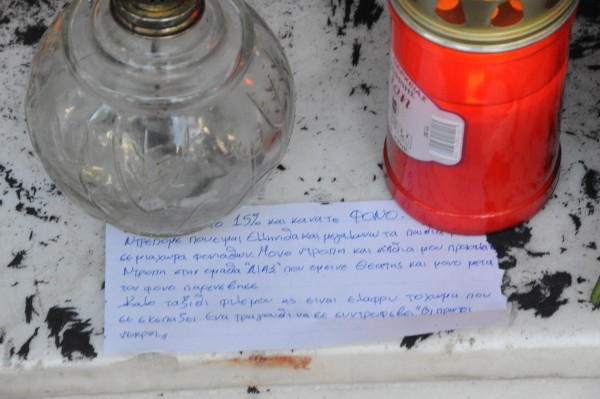 το 15% και κανατε ΦΟΝΟ.
Ντρεπομε που ειμαι Ελληνιδα και μεγαλωνω τα παιδια μ
σε μια χωρα φονιαδων. Μονο ντροπη και αηδια μου προκαλει
Ντροπη στην ομαδα "ΔΙΑΣ" που εμεινε Θεατης και μονο μετα
τον φονο παρενεβησε
Καλο ταξιδι φιλε μου ας ειναι ελαφρυ το χωμα που
σε σκεπαζει. Ενα τραγουδι να σε συντροφευει "Οι πρωτοι
νεκροι"